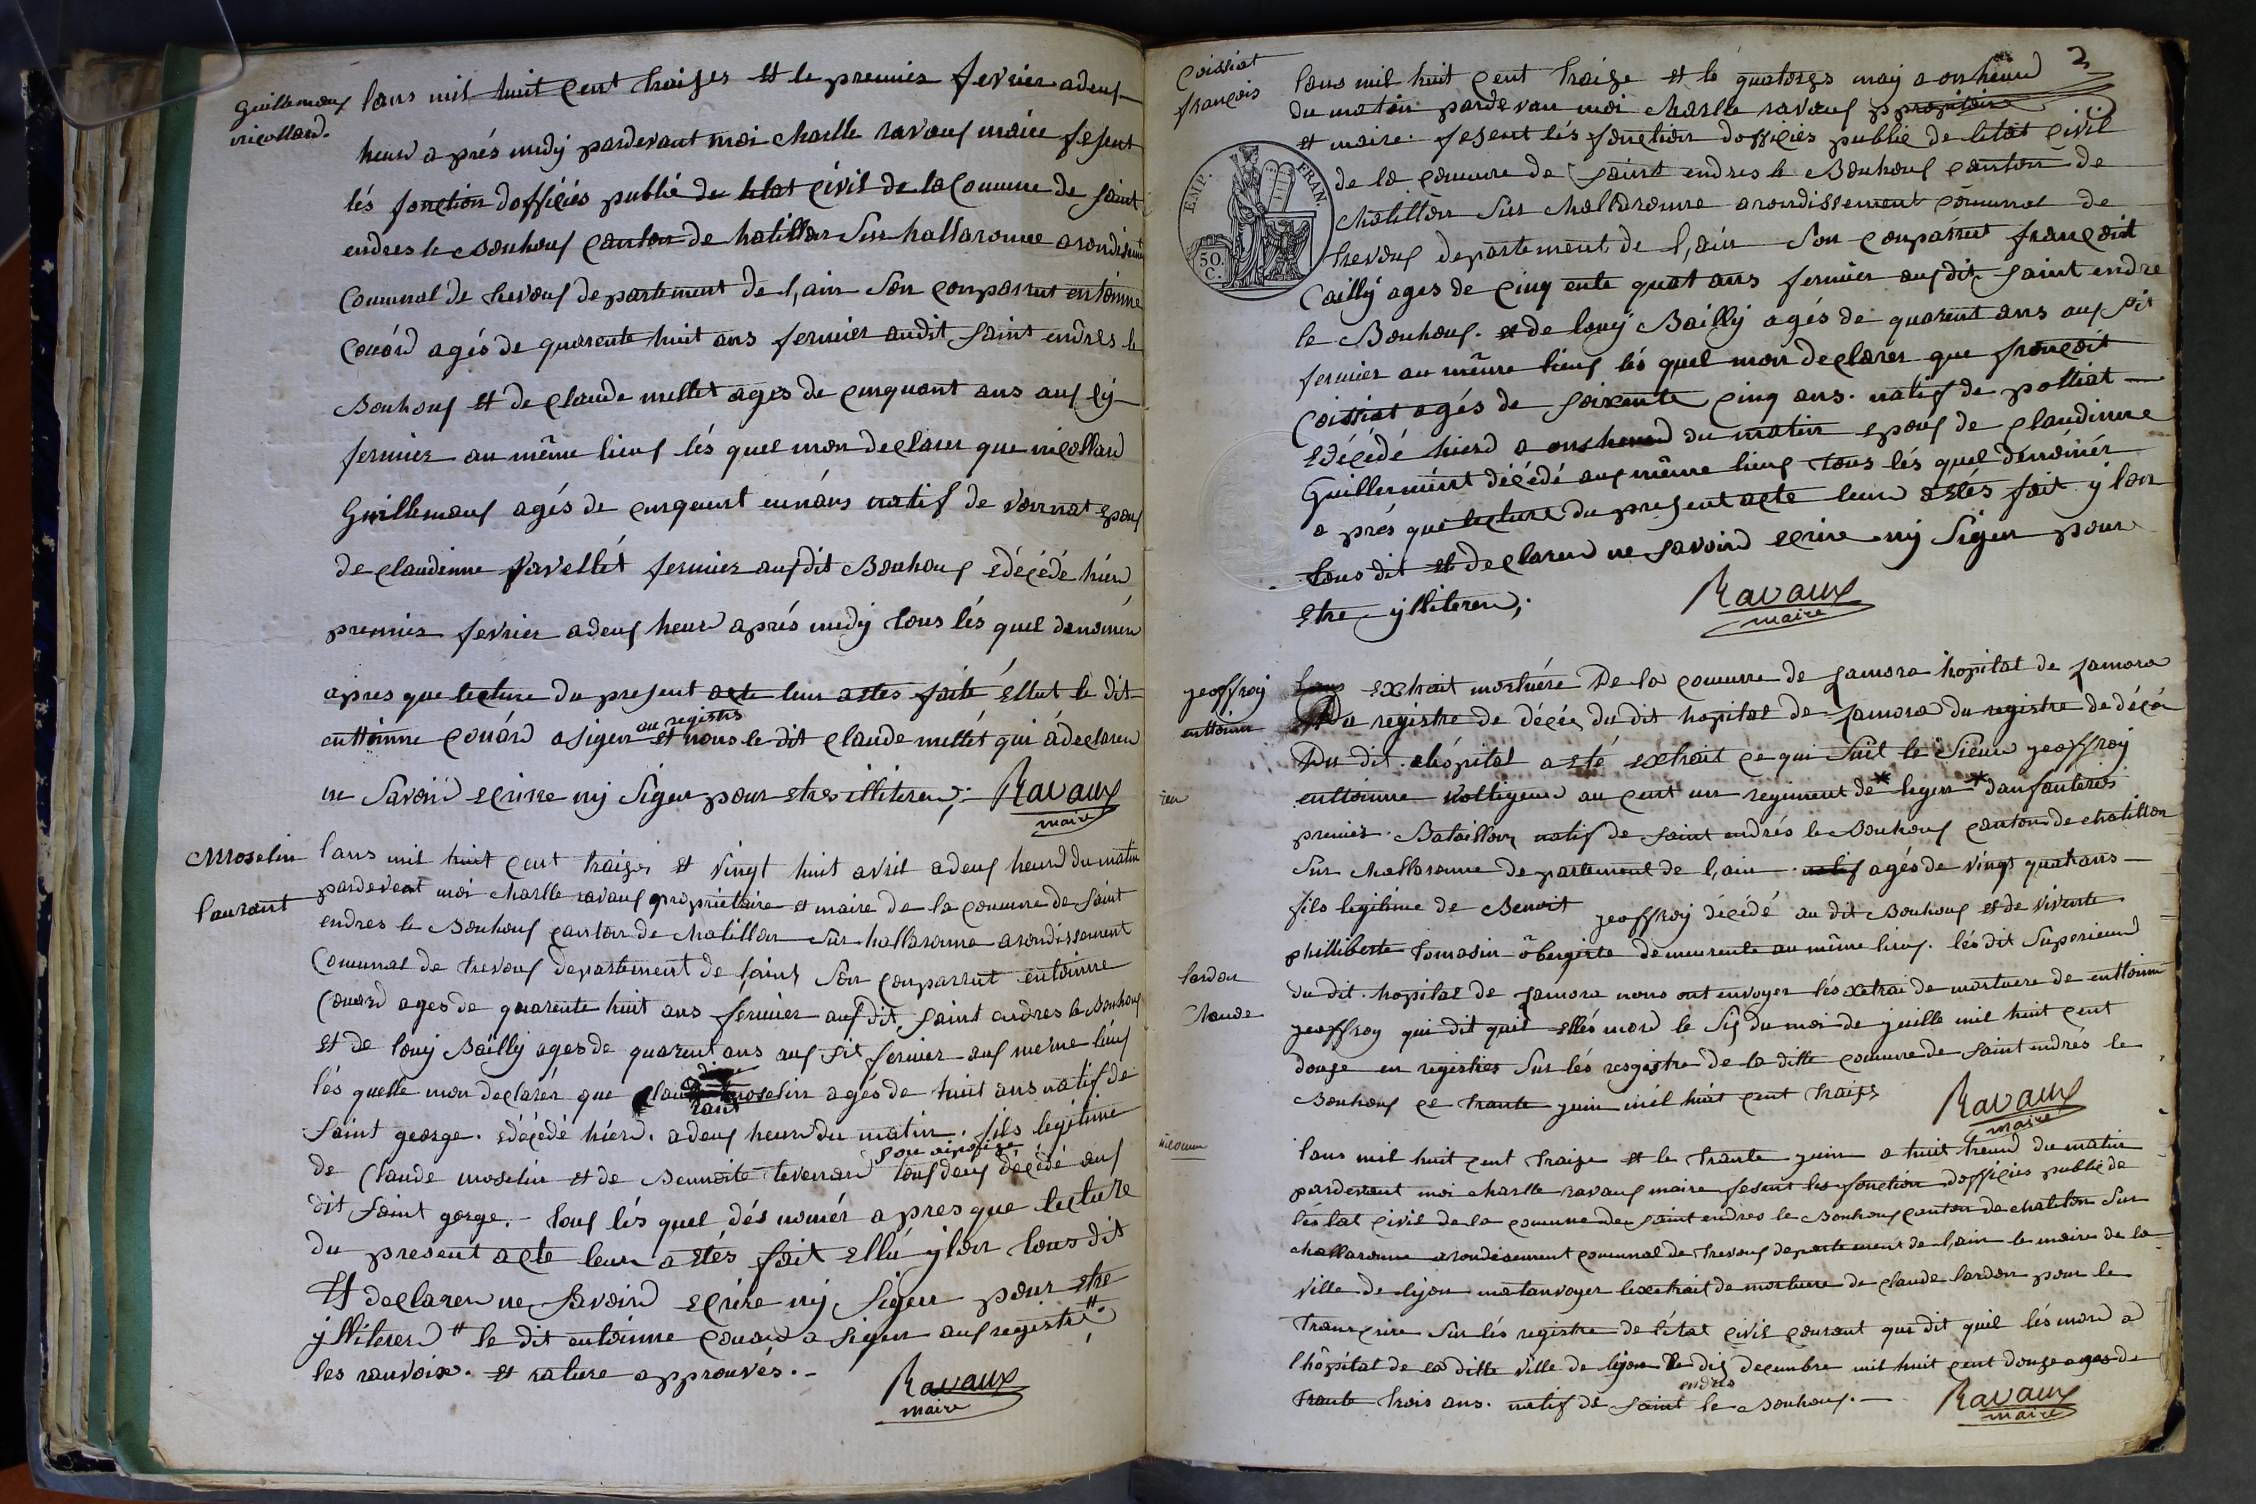 Guillemeaux
nicollard.
lans mil huit cent traizes et le premier fevrier a deux
heurd aprés midy pardevant moi charlle ravaux maire fesent
lés fonction dofficiés publié de letat civil de la Comune de saint
endres le Bouhoux canton de chatillon sur challaronne arondisement
Comunal de trevoux departement de l,ain son comparrut entoinne
Couärd agés de quarente huit ans fermier audit saint endres le
Bouhoux et de claude mellet ages de cinquant ans aux sy
fermier au même lieux lés quel mon declarer que nicollard
Guillemaux agés de cinquent eun ans natif de vonnat epoux
de claudinne favellét fermier aux dit Bouhoux edécédé hierd
premier fevrier a deux heurd aprés midy tous lés quel denomér
apres que lecture du present acte leur a etes faité ellut le dit
enttoinne Couärd a signer au registre et nous le dit claude mellét qui a declarer
ne Savoird ecrirre ny Signer pour etres illiterer; Ravaux
maire
Moselin
laurant
lans mil huit cent traizes et vingt huit avril a deux heurd du matin
pardevent moi charlle ravaux propriétaire et maire de la comune de saint
endres le Bouhoux canton de chatillon sur challaronne arondissement
Comunal de trevoux departement de l,ain son comparrut entoinne
Couard ages de quarente huit ans fermier aux dit saint endres le Bouhoux
et de louy Bailly ages de quarent ans aux sit fermier aux meme lieux
lés quelle mon declarér que lau rant moselin agés de huit ans natif de
Saint george. edécédé hierd. a deux heurd du matin. fils legitime
de Claude moselin et de Bennoite tevenard son epouse tous deux décédé aux
dit saint gorge. tous lés quel dés nomér apres que lecture
du present acte leur a etés fait ellu ylon tous dit
Et declarer ne savoird ecrire ny Signer pour etre
ylliterer # le dit entoinne couard a signer aux registre #
les ranvoix. et rature approuvés.
Ravaux
maire
2
Coissiat
françois
lans mil huit cent traize et le quatorzes may a onzheurd
du matin pardevan moi charlle ravaux ppropitaire
et maire fesent lés fonction dofficiés publié de letat civil
de la comune de saint endres le Bouhoux canton de
chatillon sur challaronne arondissement comunal de
trevoux departement de l,ain son comparrut françoit
Cailly ages de cinq ente quat ans fermier aux dit saint endre
le Bouhoux. et de louy Bailly agés de quarent ans aux sit
fermier au même lieux lés quel mon declarer que françoit
Coissiat agés de soixente cinq ans. natif de polliat
edécédé hierd a onzheurd du matin epoux de claudinne
Guillermint décédé aux même lieux tous lés quel dénomér
a prés que lecture du present acte leur a etés fait ylon
tous dit et declarer ne savoird ecrire ny Signer pour
etre ylliterer;
Ravaux
maire
EMP. FRAN.
50.
C.
geoffroy
enttoinne
extrait mortuére De la comune de zamora hopital de zamora
Du registre de décéz du dit hopital de zamora du registre de décéz
Du dit hópital a eté extrait ce qui suit le sieur geoffroy
enttoinne voltigeur au cent un regiment de * leger * danfanteris
premier. Bataillon natif de saint endrés le Bouhoux canton de chatillon
sur challaronne departement de l,ain. natif agés de vingt quat ans
fils legitime de Benoit geoffroy décédé au dit Bouhoux et de vivente
philliberte tomasin ôbergiste demeurente au même lieux. lés dit superieurd
du dit. hopital de zamora nous ont envoyer lés extrai de mortuere de enttoinne
geoffroy qui dit quil ellés mord le six du moi de juille mil huit cent
douze en registres sur lés resgistre de la ditte comune de saint endrés le
Bouhoux ce trante juin mil huit cent traizs
Ravaux
maire
lardon
Claude
lans mil huit cent traize et le trante juin a huit heurd du matin
pardevent moi charlle ravaux maire fesent les fonction dofficiés publié de
lés tat civil de la comune de saint endres le Bouhoux canton de chatillon sur
challaronne arondisement comunal de trevoux departement de l,ain le maire de la
ville de lyon ma tanvoyer lextrait de mortuere de claude lardon pour le
transcrire sur lés registre de létat civil courant qui dit quil lés mord a
lhôpital de la ditte ville de lyon le dix decembre mil huit cent douze ages de
trante trois ans. natif de saint endres le Bouhoux.
Ravaux
maire